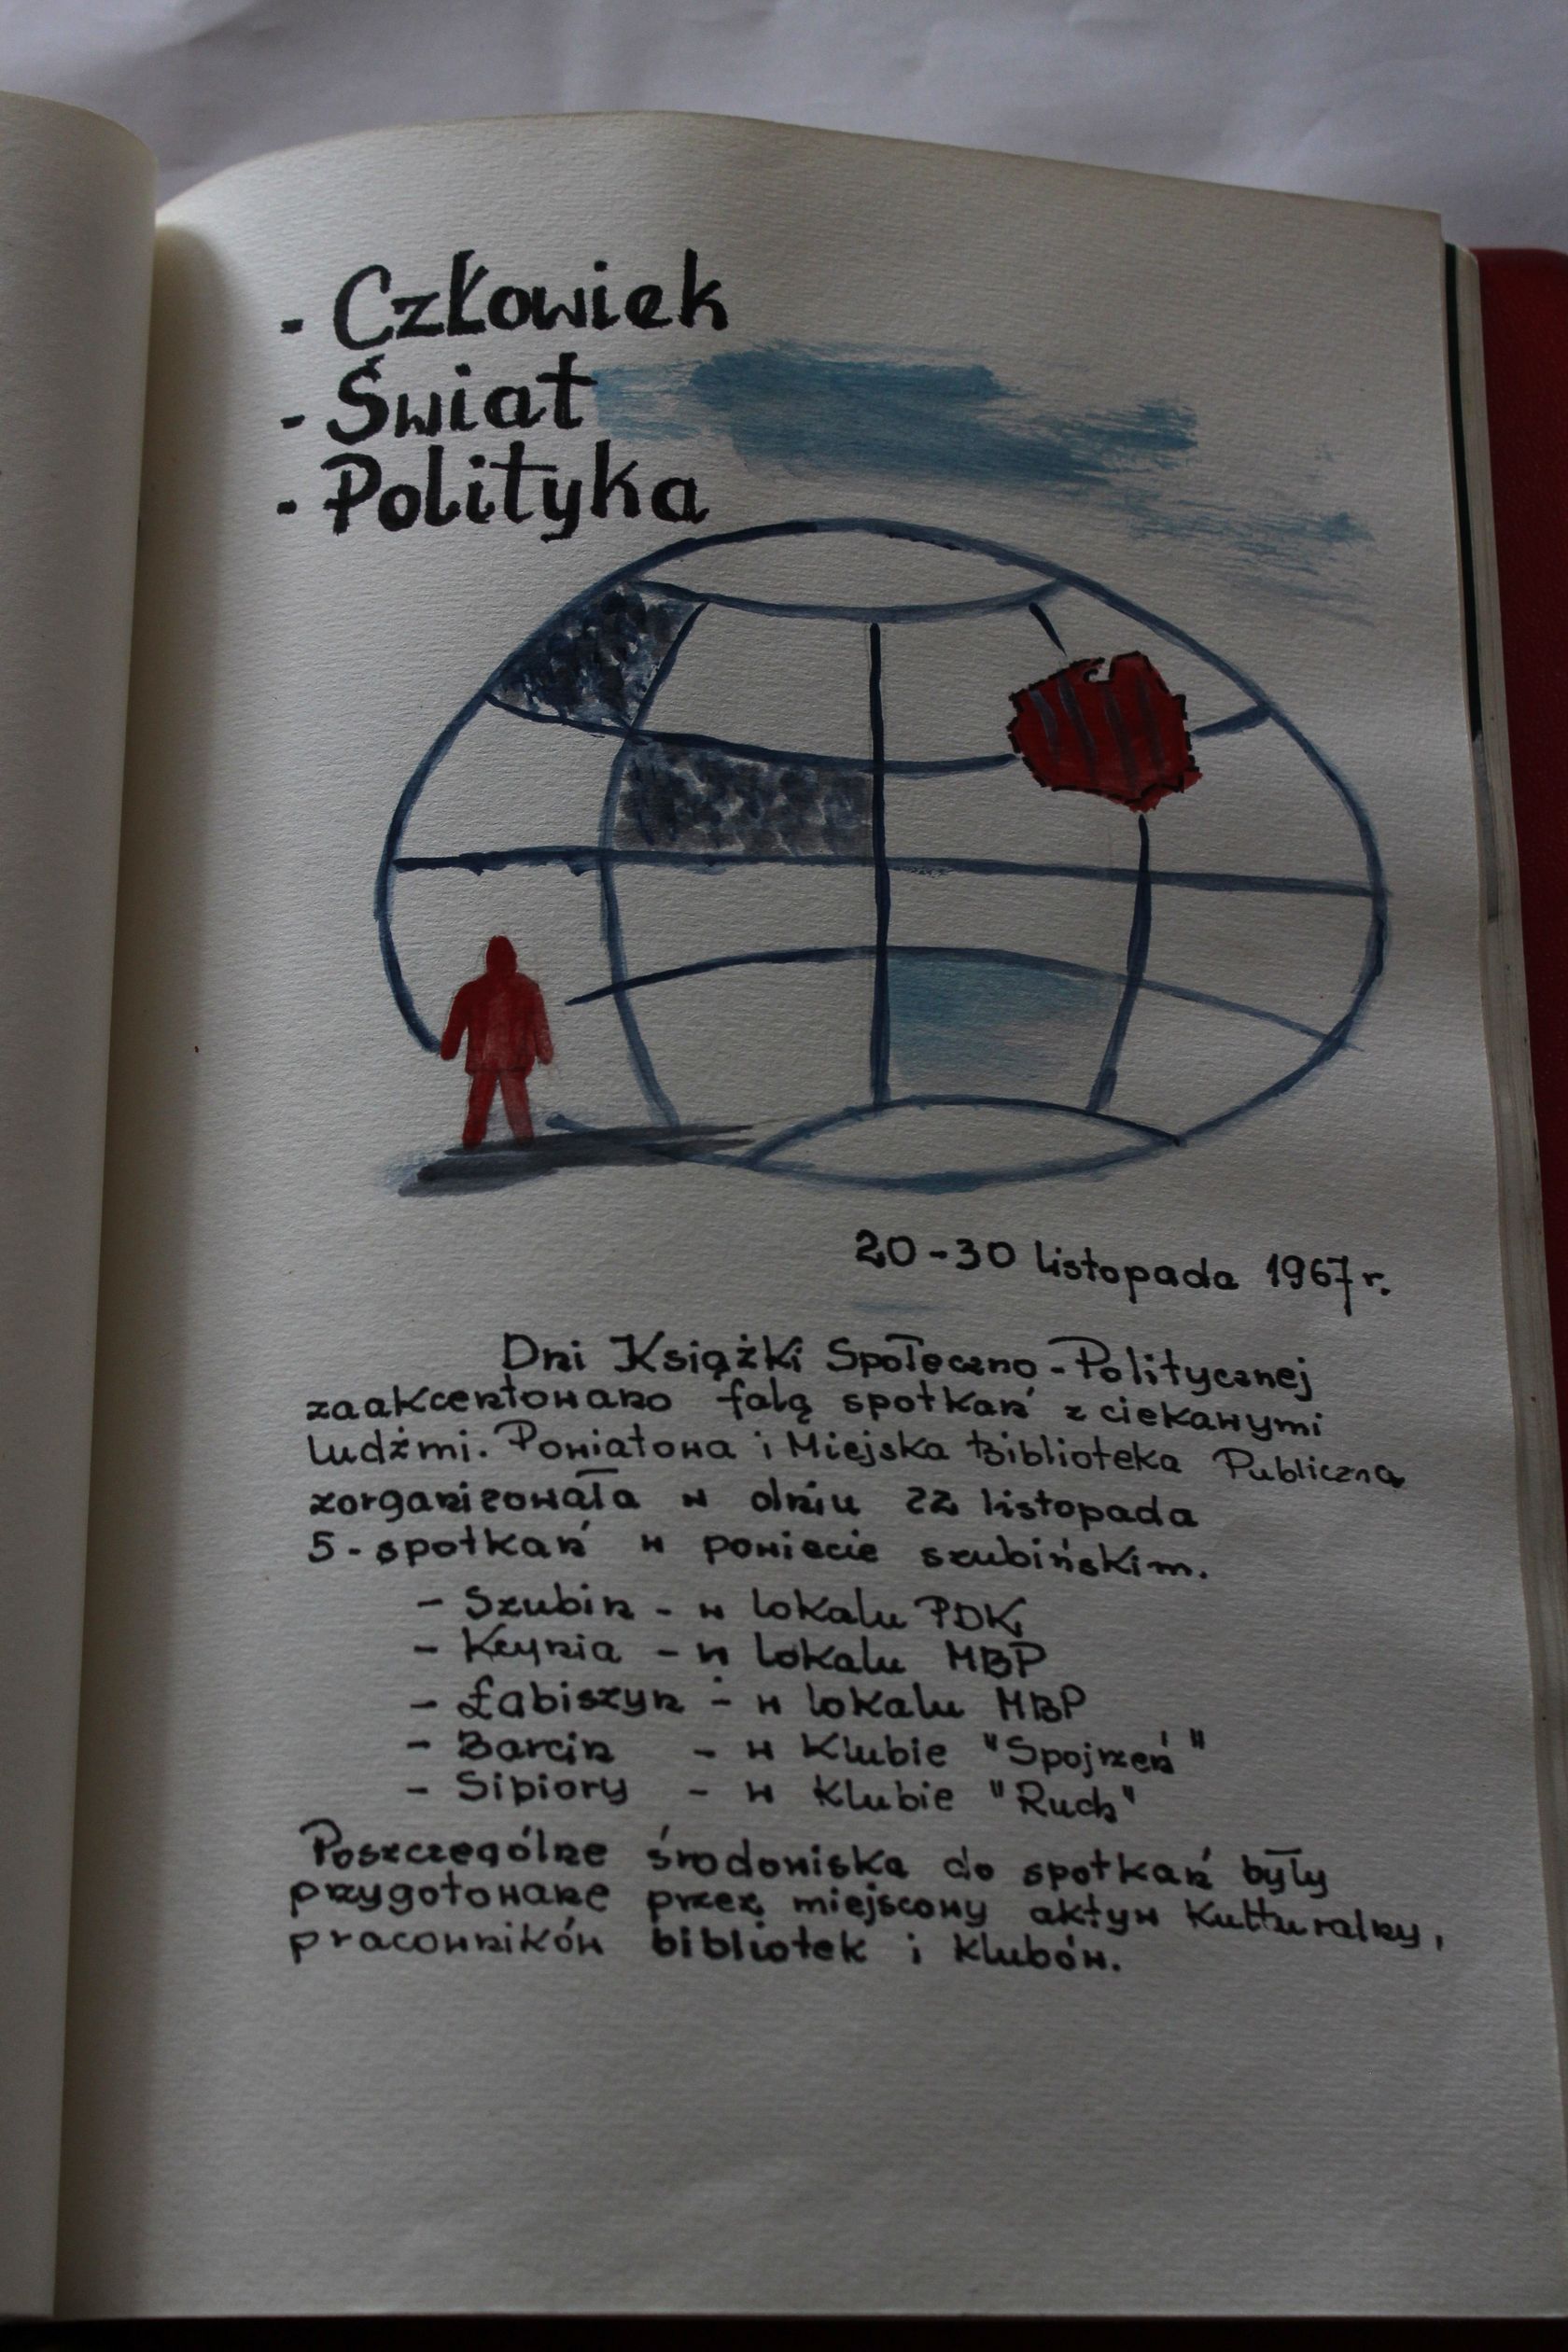 - Człowiek
- Świat
- Polityka
20-30 listopada 1967 r.
Dni Książki Społeczno-Politycznej
zaakcentowano falą spotkań z ciekawymi
ludźmi. Powiatowa i Miejska Biblioteka Publiczna
zorganizowała w dniu 22 listopada
5-spotkań w powiecie szubińskim.
- Szubin - w lokalu PDK
- Kcynia - w lokalu MBP
- Łabiszyn - w lokalu MBP
- Barcin - w Klubie "Spojrzeń"
- Sipiory - w Klubie "Ruch"
Poszczególne środowiska do spotkań były
przygotowane przez miejscowy aktyw kulturalny,
pracowników bibliotek i klubów.